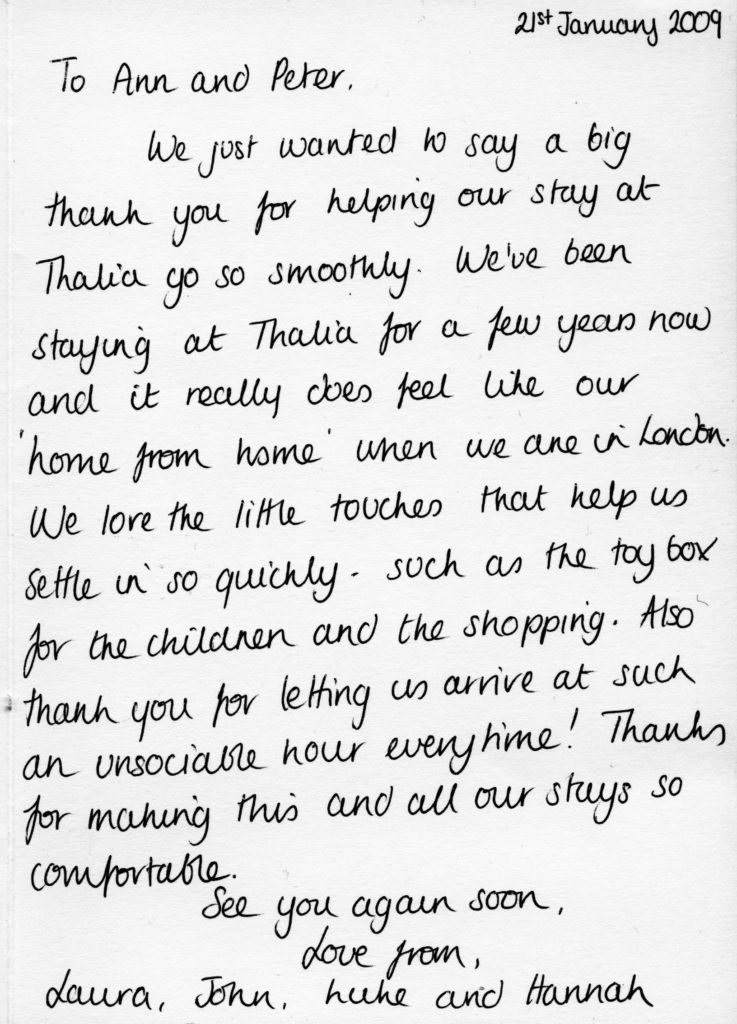 21st January 2009
To Ann and Peter,
We just wanted to say a big
thank you for helping our stay at
Thalia go so smoothly. We've been
staying at Thalia for a few years now
and it really does feel like our
'home from home' when we are in London.
We love the little touches that help us
settle in so quickly - such as the toy box
for the children and the shopping. Also
thank you for letting us arrive at such
an unsociable hour everytime! Thanks
for making this and all our stays so
comfortable.
See you again soon,
Love from,
Laura, John, Luke and Hannah